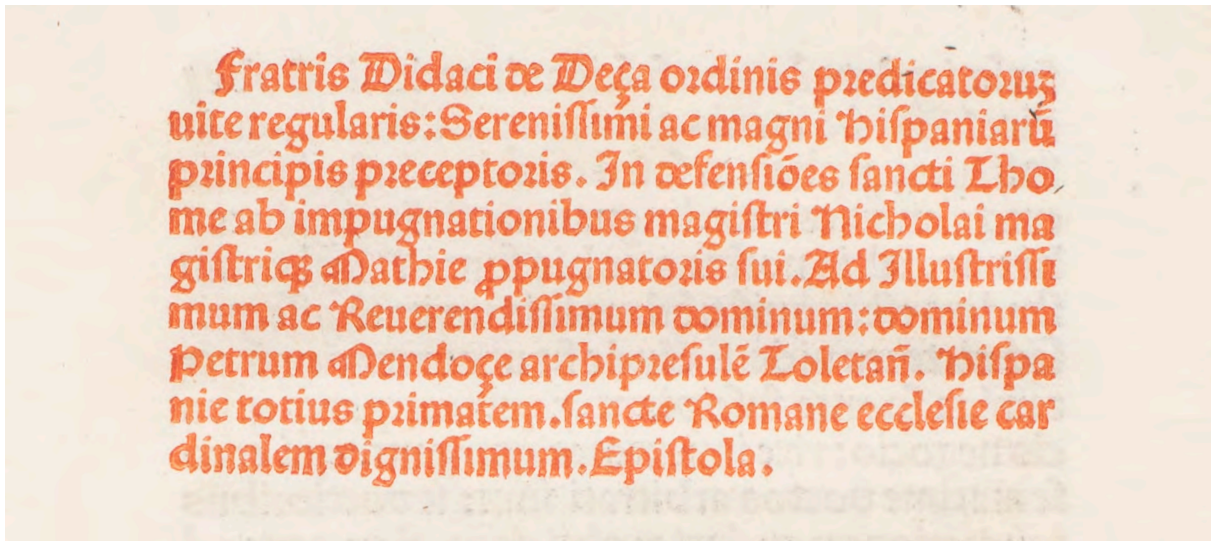 Fratris Didaci de Deça ordinis predicatoruꝫ
uite regularis: Sereniſſimi ac magni hiſpaniarū
principis preceptoris. In defenſiōes ſancti Tho
me ab impugnationibus magiſtri Nicholai ma
giſtriqꝫ Mathie ꝓpugnatoris ſui. Ad Illuſtriſſi
mum ac Reuerendiſſimum dominum: dominum
Petrum Mendoçe archipreſulē Toletañ. hiſpa
nie totius primatem. ſancte Romane eccleſie car
dinalem digniſſimum. Epiſtola.